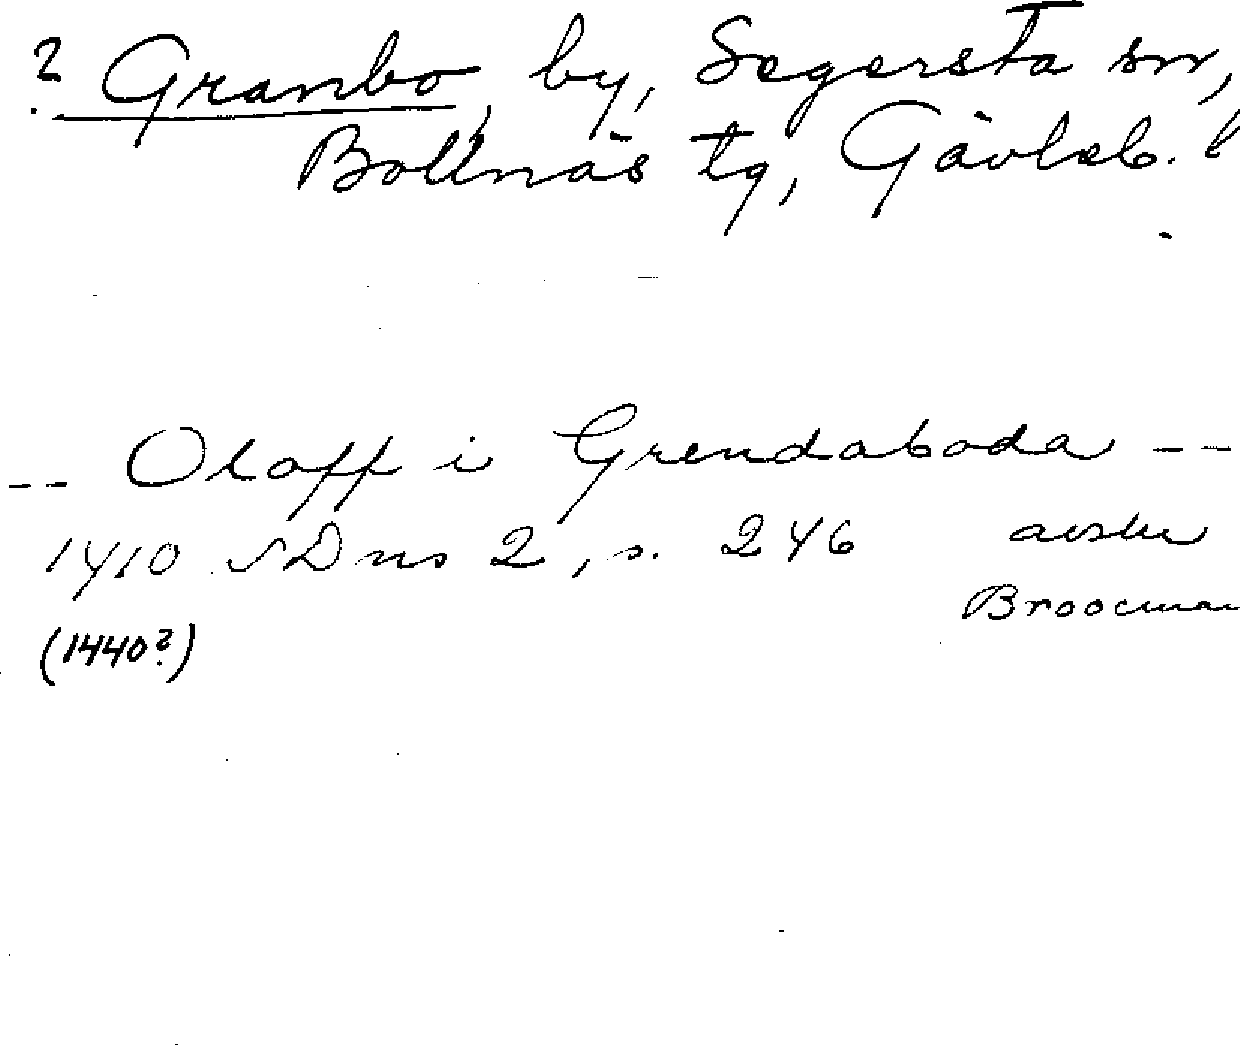 ? Granbo, by, Segersta sn,
Bollnäs tg, Gävleb. l
-- Olaff i Grendaboda --
1410 SDns 2, s. 246 avskr
(1440?) Broocman